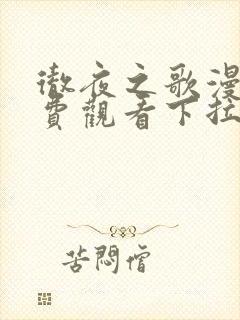 徹夜之歌漫
費觀看下拉
苦悶僧